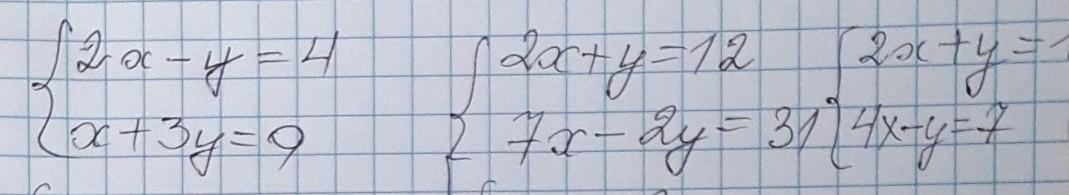 2x-y=4
x+3y=9
2x+y=12
7x-2y=31
2x+y=
4x-y=7